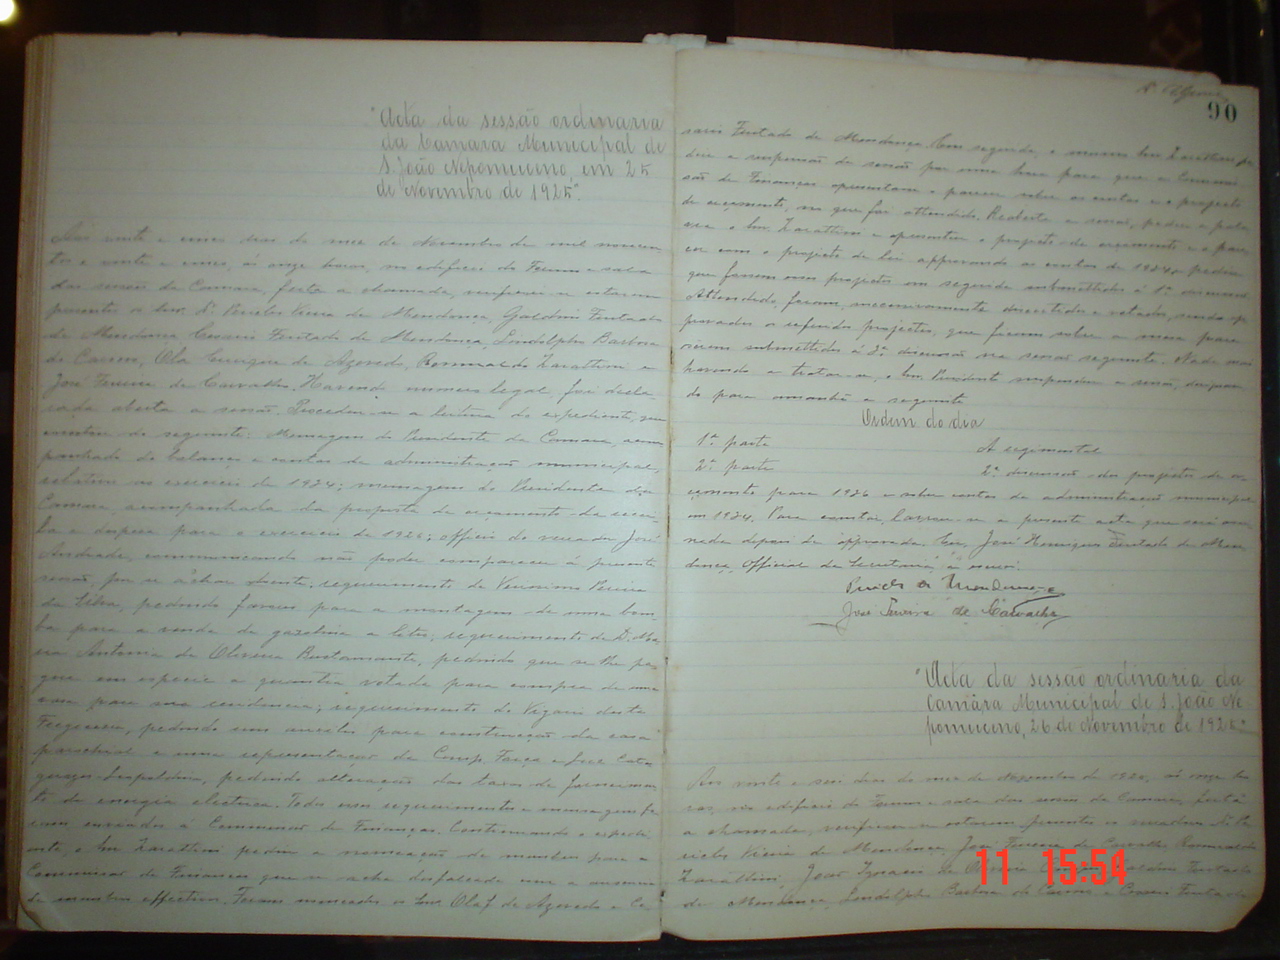 "Acta da sessão ordinaria
da Camara Municipal de
S. João Nepomuceno, em 25
de Novembro de 1925."
Aos vinte e cinco dias do mez de Novembro de mil novecen-
tos e vinte e cinco, ás onze horas, no edificio do Forum e sala
das sessões da Camara, feita a chamada, verificou-se estarem
presentes os snrs. Dr. Pericles Vieira de Mendonça, Galdino Furtado
de Mendonça, Cesario Furtado de Mendonça, Lindolpho Barbosa
de Castro, Olaf de Azevedo, Romualdo Zarattini e
José Ferreira de Carvalho. Havendo numero legal, foi decla-
rada aberta a sessão. Procedeu-se a leitura do expediente, que
constou do seguinte: Mensagem do Presidente da Camara, acom-
panhada do balanço e contas da administração municipal,
relativa ao exercicio de 1924; mensagem do Presidente da
Camara, acompanhada da proposta de orçamento da recei-
ta e despeza para o exercicio de 1926; officio do vereador José
Andrade, communicando não poder comparecer á presente
sessão, por se achar doente; requerimento de Veronimo Pereira
da Silva, pedindo favores para a montagem de uma bom-
ba para a venda de gazolina a litro; requerimento de D. Ma-
ria Antonia de Oliveira Bustamante, pedindo que se lhe pa-
gue em especie a quantia votada para compra de uma
casa para sua residencia; requerimento do Vigario desta
Freguezia, pedindo um auxilio para construcção da casa
parochial e uma representação da Comp. Força e Luz Cata-
guazes-Leopoldina, pedindo alteração das taxas de fornecimen-
to de energia electrica. Todos esses requerimentos e mensagens fo-
ram enviados á Commissão de Finanças. Continuando o expedi-
ente, o Snr. Zarattini pediu a nomeação de membro para a
Commissão de Finanças que se acha desfalcada com a ausencia
de membro effectivo. Foram nomeados os Snrs. Olaf de Azevedo e Ce-
90
sario Furtado de Mendonça. Em seguida, o mesmo Snr. Zarattini pe-
diu a suspensão da sessão por uma hora para que a Commis-
são de Finanças apresentasse o parecer sobre as contas e o projecto
de orçamento, no que foi attendido. Reaberta a sessão, pediu a pala-
vra o Snr. Zarattini e apresentou o projecto de orçamento e o pare-
cer com o projecto de lei approvando as contas de 1924, pedindo
que fossem esses projectos em seguida submettidos á 1ª discussão.
Attendido, foram, successivamente discutidos e votados, sendo ap-
provados os referidos projectos, que ficam sobre a mesa para
serem submettidos á 2ª discussão na sessão seguinte. Nada mais
havendo a tratar-se, o Snr. Presidente suspendeu a sessão, designan-
do para amanhã a seguinte
Ordem do dia
1ª parte A regimental
2ª parte 2ª discussão dos projectos de or-
çamento para 1926 e sobre contas da administração municipal
em 1924. Para constar, lavrou-se a presente acta que será assig-
nada depois de approvada. Eu, José Henriques Furtado de Men-
donça, Official da Secretaria, a escrevi.
Pericles V. Mendonça
José Ferreira de Carvalho
"Acta da sessão ordinaria da
Camara Municipal de S. João Ne-
pomuceno, 26 de Novembro de 1925."
Aos vinte e seis dias do mez de Novembro de 1925, ás onze ho-
ras, no edificio do Forum e sala das sessões da Camara, feita
a chamada, verificou-se estarem presentes os vereadores Dr. Pe-
ricles Vieira de Mendonça, José Ferreira de Carvalho, Romualdo
Zarattini, José Ignacio de Galdino Furtado
de Mendonça, Lindolpho Barbosa de Castro e Cesario Furtado
11 15:54